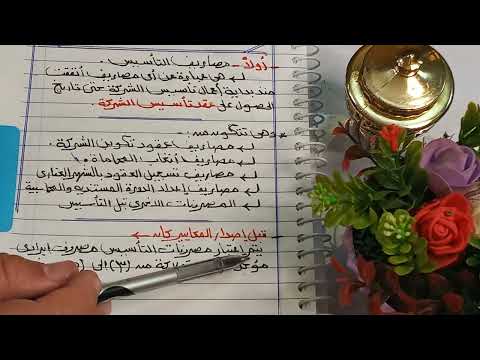 - أولاً - مصاريف التأسيس.
هى عبارة عن أى مصاريف أنفقت
منذ بداية أعمال تأسيس الشركة حتى تاريخ
الحصول على عقد تأسيس الشركة.
وهى تتكون من :-
مصاريف عقود تكوين الشركة.
مصاريف أتعاب المحاماة.
مصاريف تسجيل العقود بالشهر العقارى
مصاريف إعداد الدورة المستندية والمحاسبية
المصروفات الأخرى قبل التأسيس
قبل إصدار المعايير كان
يتم اعتبار مصروفات التأسيس مصروف إيرادى
من (٣) إلى